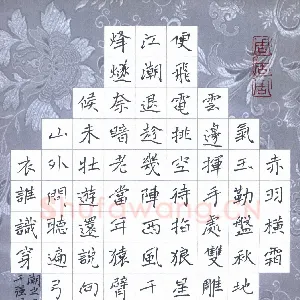 赤羽橫霜
氣玉勒盤秋地
雲邊揮手處雙雕
便飛電挑空待拍狼星
江潮退趁幾陣西風千
烽燧奈暗老當年猿臂
候未壯遊還說向
山外閒聽遍弓
衣誰識穿